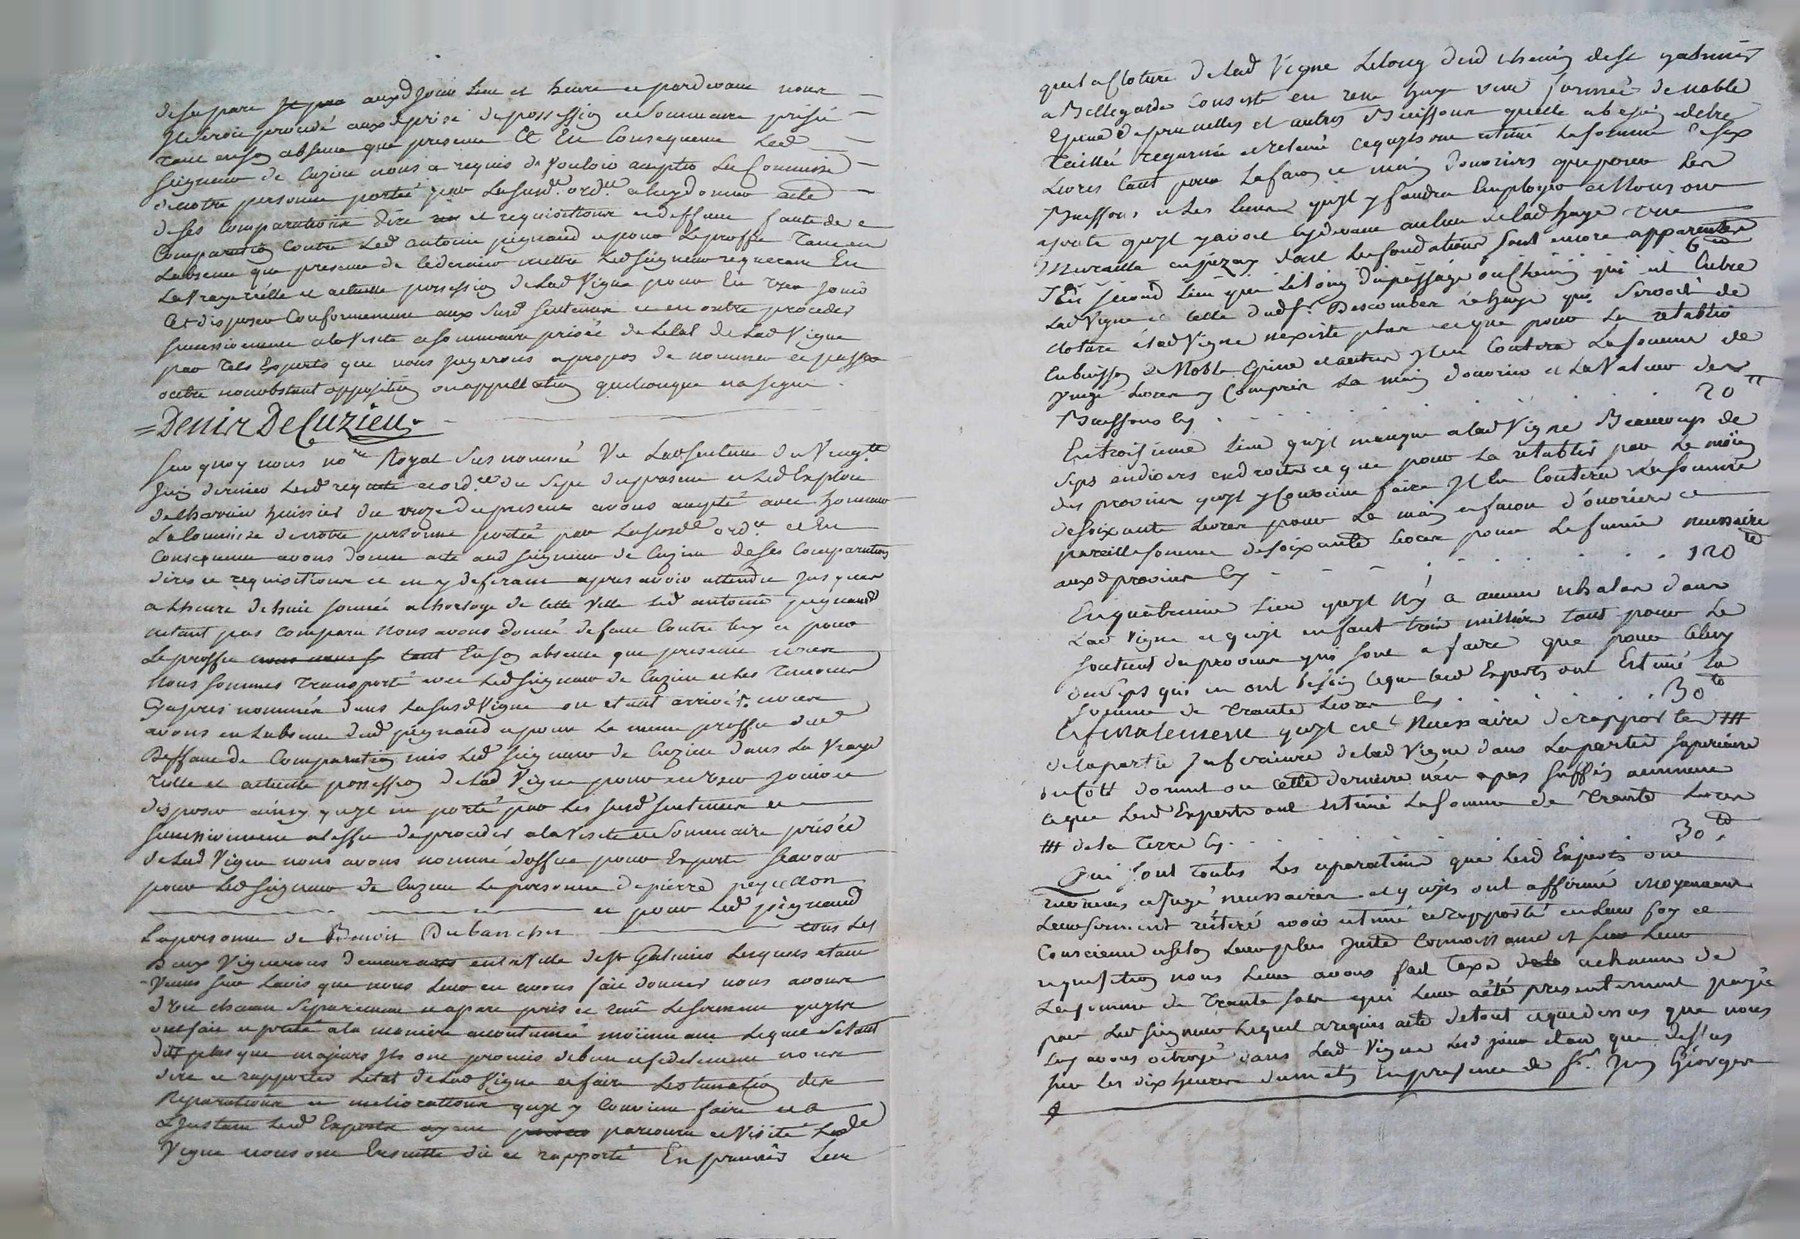 de sa part aux d jour lieu et heure et pardevant nous
il seroit procédé aux d prise de possession et sommaire prisée
tant en son absence que presence Et En Consequence led
seigneur de Cuzieu nous a requis de vouloir accepter La Commission
de notre personne portée par La susde ordce a luy donner acte
de ses comparutions dire et requisitions et deffaut faute de
Comparution Contre Led antoine peignaud et pour Le proffit Tant en
Labsence que presence de ce dernier mettre Led seigneur requerant En
La vraye réelle et actuelle possession de Lad Vigne pour En user jouir
Et disposer Conformement aux susd sentences et en outre proceder
successivement a la Visite et sommaire prisée de Letat de Lad Vigne
par Tels Experts que nous jugerons apropos de nommer et passer
outre nonobstant opposition ou appellation quelconque et a signé
= Denis De Cuzieu
sur quoy nous nore Royal sus nommé Vu Lad sentence du Vingt
juin dernier Led requete et ordce du sept du present et Led Exploit
de huissier du onze du present avons accepté avec honneur
La Commission de notre personne portée par La susde ordce et En
Consequence avons donné acte aud seigneur de Cuzieu de ses Comparutions
dires et requisitions et en y deferant apres avoir attendu jusques
a Lheure de huit sonnée a horloge de Cette Ville Led antoine peignaud
netant pas comparu nous avons donné defaut Contre luy et pour
Le proffit tant En son absence que presence
nous sommes transporté avec Led seigneur de Cuzieu et les Temoins
Cy apres nommés dans La susd Vigne ou etant arrivés nous
avons en Labsence dud peignaud et pour Le meme proffit dud
Deffaut de Comparution mis Led seigneur de Cuzieu dans La Vraye
réelle et actuelle possession de Lad Vigne pour en user jouir et
disposer ainsy quil est porté par les susd sentences et
successivement a leffet de proceder a la Visite et sommaire prisée
de Lad Vigne nous avons nommé doffice pour Experts scavoir
pour Led seigneur de Cuzieu La personne de pierre peycellon
et pour Led peignaud
La personne de Benoit Dubanchet tous les
Deux Vignerons demeurants en la Ville de st Galmier Lesquels etant
Venus sur Lavis que nous Leur en avons fait donner nous avons
d'eux chacun séparément et apart pris et recu Le serment quils
ont fait et preté a la maniere accoutumée moyennant Lequel
dit plus que majeurs ils ont promis de bien et fidelement nous
dire et rapporter Letat de Lad Vigne et faire Lestimation des
Reparations et meliorations quil y Convient faire et a
Linstant Lesd Experts ayant parcouru et Visité Lade
Vigne nous ont Ensuitte dit et rapporté En premier Lieu
que La Cloture de Lad Vigne Le Long dud chemin de st galmier
a Bellegarde Consiste en une haye vive formée de noble
Epine de prunelles et autres Buissons quelle a besoin detre
Taillée regarnie et relevée ce quils ont estimé La somme de six
Livres tant pour La facon et main d'ouvriers que pour Les
Buissons et les liens quil y faudra Employer et Nous ont
ajouté quil y avoit cy devant au lieu de lad haye une
Muraille en pizay dont Les fondations sont encore apparentes
6 #
En second Lieu que Le long du passage ou Chemin qui est Entre
Lad Vigne et Celle dud sr Descombes La haye qui servoit de
cloture a lad Vigne nexiste plus et que pour La retablir
En buissons de Noble Epine et autres il en Coutera La somme de
vingt Livres y Compris La main d'ouvrier et La Valeur des
Buissons Cy . . . . . 20 #
En troisieme Lieu quil manque a lad Vigne Beaucoup de
seps en divers endroits et que pour La retablir par Le moyen
des provins quil y Convient faire Il En Coutera La somme
de soixante Livres pour La main et facon d'ouvriers et
pareille somme de soixante Livres pour Le fumier necessaire
aux d provins Cy . . . . . 120 #
En quatrieme Lieu quil N'y a aucun echalas dans
Lad Vigne et quil en faut trois milliers tant pour Le
soutient des provins qui sont a faire que pour Celuy
des seps qui en ont besoin Ce que lesd Experts ont Estimé La
somme de trante Livres Cy . . . . . 30 #
Et finalement quil est Necessaire de rapporter #
de la partie Inferieure de lad Vigne dans La partie superieure
du Coté dorient ou Cette derniere n'en a pas suffisamment
Ce que Lesd Experts ont estimé La somme de Trante Livres
# de la terre Cy . . . . . 30 #
Qui sont toutes Les reparations que Lesd Experts ont
reconnus et jugé necessaires et y ont affirmé moyennant
Leur serment réiteré avoir estimé et rapporté en Leur foy et
Conscience et selon Leur plus juste Connoissance et Leur
requisition nous Leur avons fait Taxe a chacun de
La somme de trante sols qui Leur a été presentement payée
par Led seigneur Lequel a requis acte de tout ce que dessus que nous
Luy avons octroyé dans Lad Vigne Led jour et an que dessus
sur les dix heures du matin En presence de sr